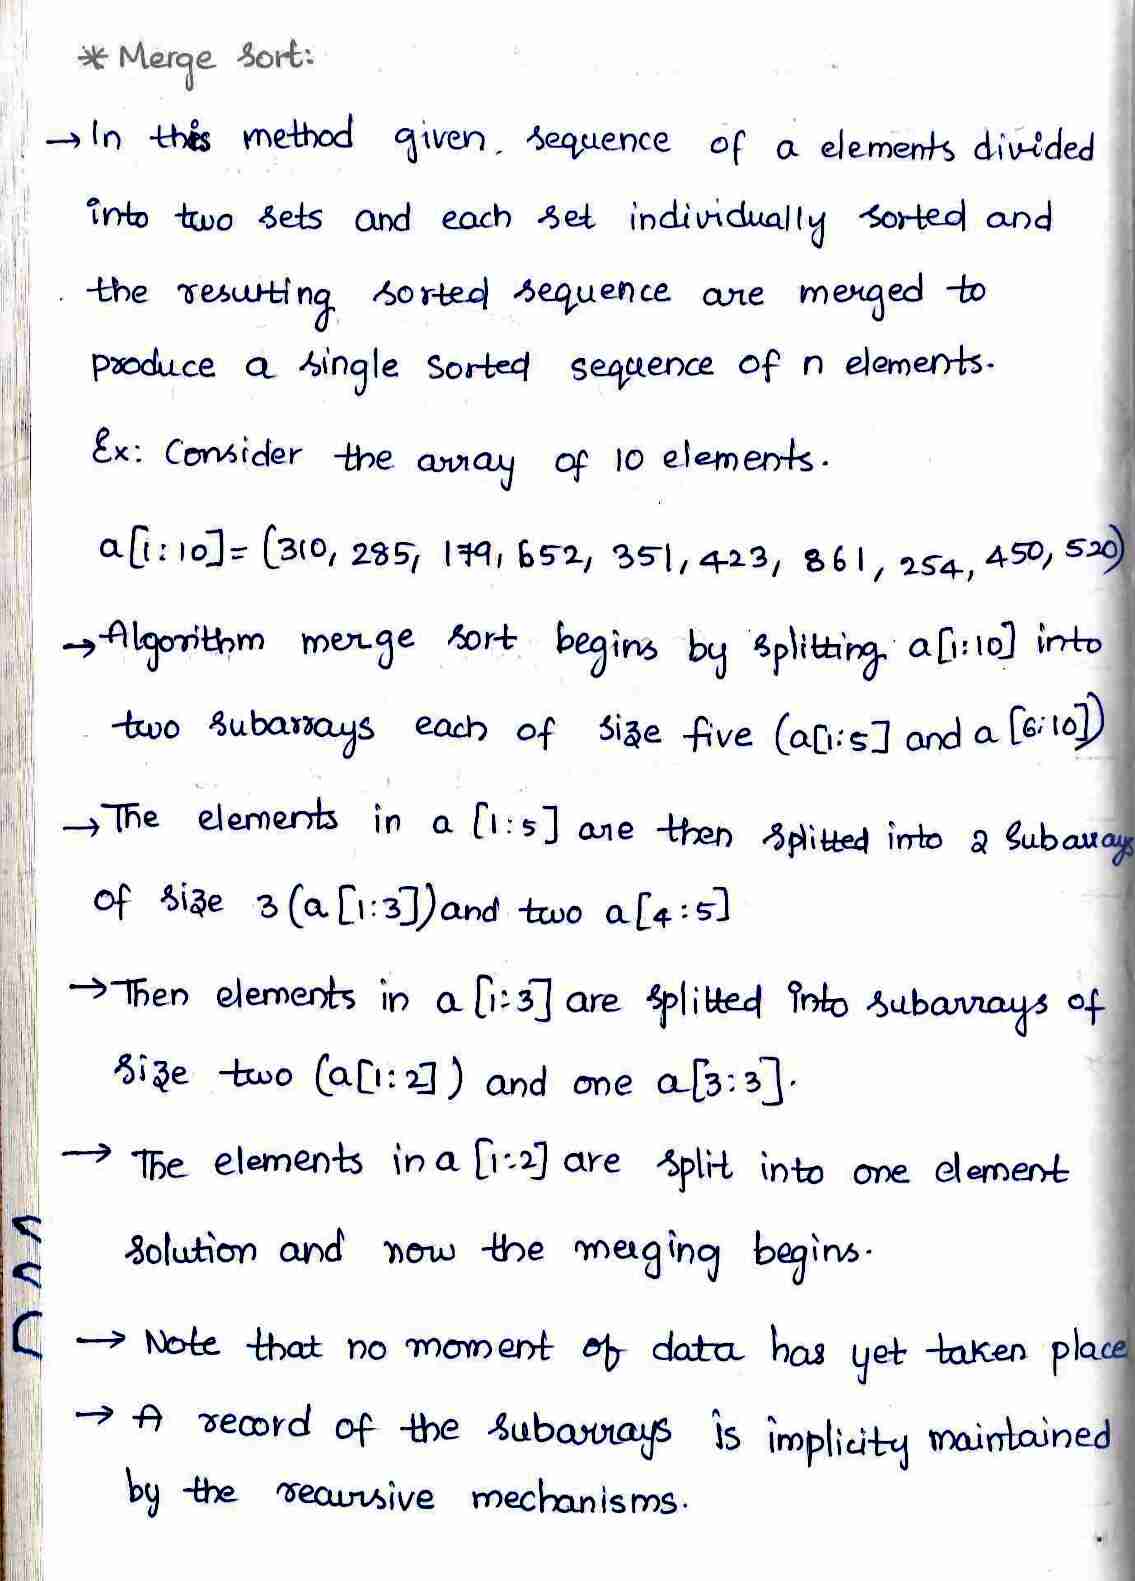 * Merge Sort:
→ In this method given sequence of a elements divided
into two sets and each set individually sorted and
the resulting sorted sequence are merged to
produce a single sorted sequence of n elements.
Ex: Consider the array of 10 elements.
a[1:10]= (310, 285, 179, 652, 351, 423, 861, 254, 450, 520)
→ Algorithm merge sort begins by splitting a[1:10] into
two subarrays each of size five (a[1:5] and a [6:10])
→ The elements in a [1:5] are then splitted into 2 Subarrays
of size 3 (a [1:3]) and two a[4:5]
→ Then elements in a [1:3] are splitted into subarrays of
size two (a[1:2]) and one a[3:3].
→ The elements in a [1:2] are split into one element
solution and now the merging begins.
→ Note that no moment of data has yet taken place
→ A record of the subarrays is implicity maintained
by the recursive mechanisms.